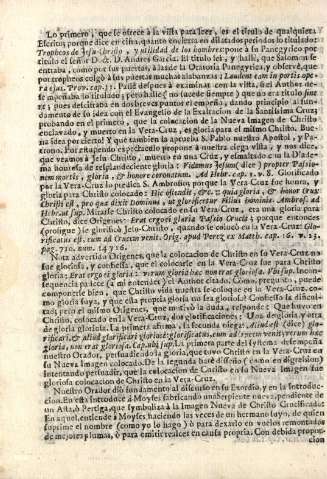 Lo primero, que se ofrece à la vista para leer, es el titulo de qualquiera
Escrito; porque dize en cifra, quanto encierra en dilatados periodos lo titulado:
Tropheos de Jesu-Christo, y utilidad de los hombres: pone à su Panegyrico por
titulo el señor D. & D. Andres Garcia. El titulo leì, y hallè, que Salomon se
sentaba, como por sus puertos, à toda la Oratoria Panegyrica, y observè, que
por tropheos colgò à sus puertas muchas alabanzas: Laudent eam in portis ope-
ra ejus. Prov. cap. 31. Passè despues à examinar con la vista, si el Author de-
sempeñaba lo titulado; pensabilidad (no sucede siempre) que no era titulo sin
ver; pues descifraba en dos breves puntos el empeño, dando principio al funda-
mento de su idea con el Evangelio de la Exaltacion de la Santissima Cruz;
probando en el primero, que la colocacion de la Nueva Imagen de Christo
enclavado, y muerto en la Vera-Cruz, es gloria para el mismo Christo. Bue-
na idea por cierto! Y que tambien la apoya S. Pablo nuestro Apostol, y Pa-
tron. Por estupendo espectaculo propone à nuestra ciega vista, y nos dice,
que veamos à Jesu-Christo, muerto en una Cruz, y esmaltado en su Diade-
ma honrosa de resplandeciente gloria: Videmus Jesum (dice) propter Passio-
nem mortis, gloria, & honore coronatum. Ad Hebr. cap. 2. v. 8. Glorificado
por la Vera-Cruz lo predica S. Ambrosio, porque la Vera-Cruz fue honra, y
gloria para Christo colocado: Hæc est
Christi est, pro qua dixit Dominus, ut glorificetur Filius hominis. Ambros. ad
Hebræos sup. Mirase Christo colocado en su Vera-Cruz, era una gloria para
Christo, dice Origenes: Erat ergo gloria Passio Crucis; porque entonces
(prosigue) se glorificò Jesu-Christo, quando se colocò en la Vera-Cruz: Glo-
rificatus est, cum ad Crucem venit. Orig. apud Perez ex Matth. cap. 16. v. 23.
pag. 720. num. 14716.
Nota advertida Origenes, que la colocacion de Christo en su Vera-Cruz no
fue gloriosa, y confiessa, que el colocarle en la Vera-Cruz fue para Christo
gloria; Erat ergo & gloria: verum gloria hæc non erat gloriosa. Ubi sup. Incon-
sequencia parece (à mi entender) el Author citado. Como, pregunto, puede
componerse bien, que Christo vida nuestra se coloque en la Vera-Cruz, co-
mo gloria suya, y que esta propria gloria no sea gloriosa? Confiessa la dificul-
tad; pero el mismo Origenes, que motivò la duda, responde: Que huvo en
Christo, colocado en la Vera-Cruz, dos glorificaciones: Una de gloria, y otra
de gloria gloriosa. La primera afirma, la segunda niega: Aliud est (dice) glo-
rificari, & aliud glorificari gloria: & glorificatus, cum ad Crucem venit verum
gloria, non erat gloriosa. Cap.& pag. sup. La primera parte del systema desempeña
nuestro Orador, persuadiendo la gloria, que tuvo Christo en la Vera-Cruz en
su Nueva Imagen colocado. De la segunda haré diseño (como en digression)
intentando persuadir, que la colocacion de Christo en su Nueva Imagen fue
gloriosa colocacion de Christo en la Vera-Cruz.
Nuestro Orador diò fundamento al discurso en su Exordio, y en la Introduc-
cion. En esta Introduce à Moyses fabricando una serpiente nueva, pendiente de
un Asta, ò Pertiga, que symboliza à la Imagen Nueva de Christo Crucificado.
En aquel, entiende à Moyses haciendo las veces de un hermano suyo, de quien
suprime el nombre (como yo lo hago) ò para dexarlo en vuelos remontados
de mejores plumas, ò para omitir realces en causa propria. Con debida propor-
cion